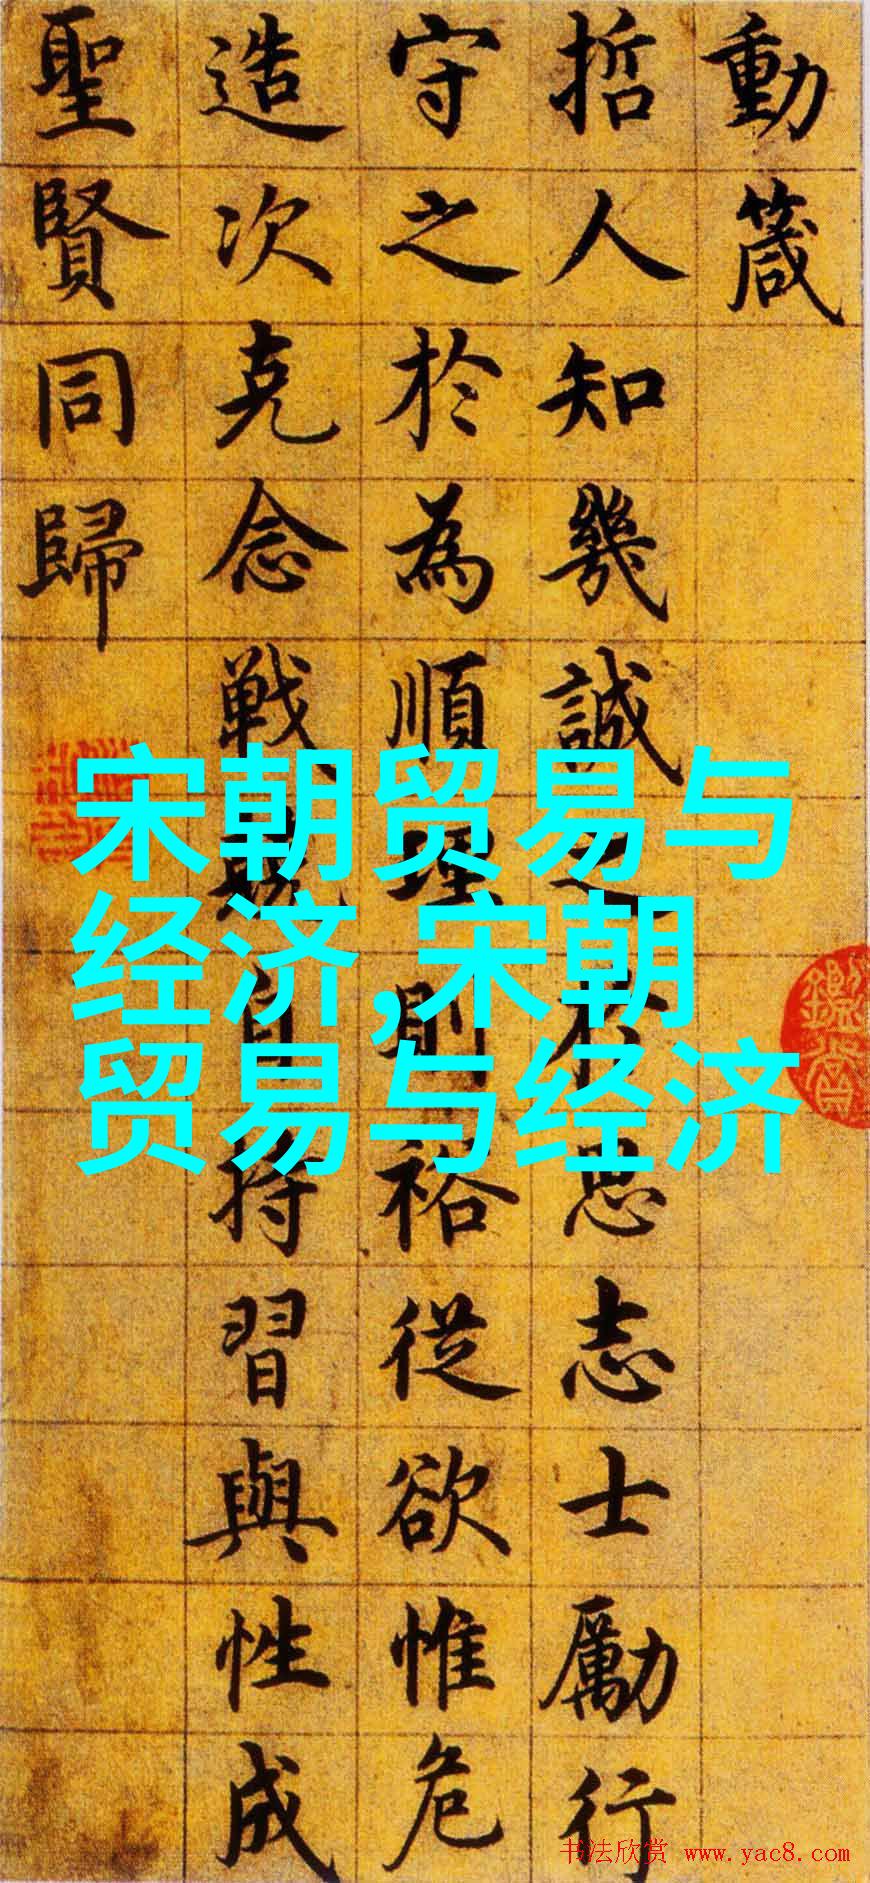 動箴
哲人知幾誠之於思志士勵行
守之於為順理則裕從欲惟危
造次克念戰兢自持習與性成
聖賢同歸
宋朝贸易与
经济,宋朝
贸易与经济
书法欣赏 www.yac8.com